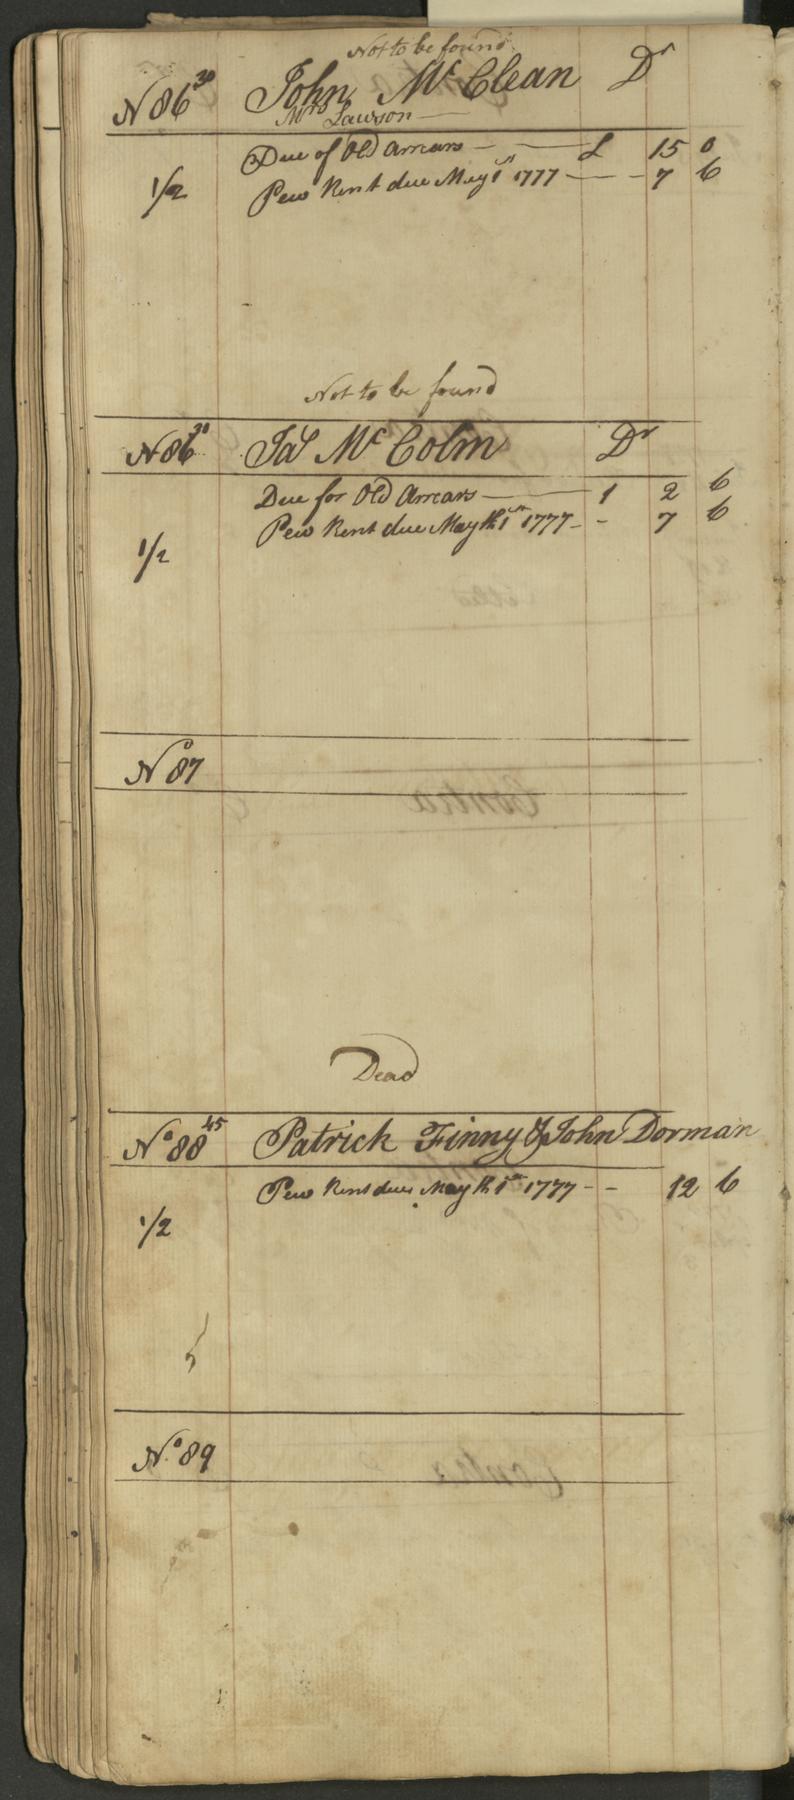 Not to be found
No 86 30 John Mc Clean Dr
Mrs Lawson
Due of Old Arrears — £ 15 0
1/2 Pew Rent due May 1st 1777 — 7 6
Not to be found
No 86 30 Jas Mc Colm Dr
Due for Old Arrears — 1 2 6
Pew Rent due May th 1st 1777 - - 7 6
1/2
No 87
Dead
No 88 45 Patrick Finny & John Dorman
Pew Rent due May th 1st 1777 - - 12 6
1/2
No 89